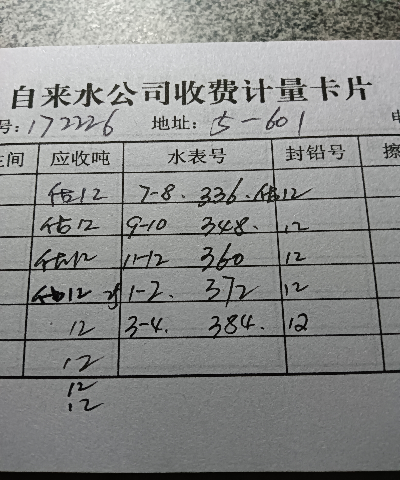 自来水公司收费计量卡片
号:172226 地址: 5-601 电
主间 应收吨 水表号 封铅号 擦
估12 7-8. 336. 估12
估12 9-10 348. 12
估12 11-12 360 12
估12 1-2. 372 12
12 3-4. 384. 12
12
12
12